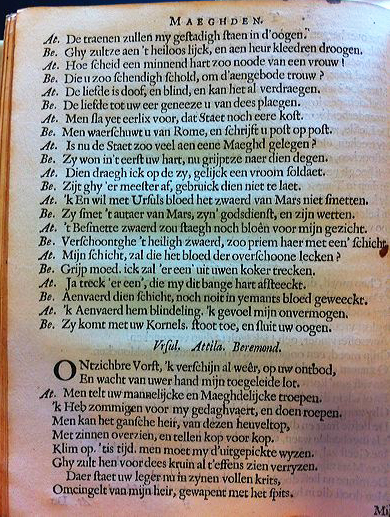 MAEGHDEN.
At. De traenen zullen my gestadigh staen in d'oogen.
Be. Ghy zultze aen 't heiloos lijck, en aen heur kleedren droogen.
At. Hoe scheid een minnend hart zoo noode van een vrouw!
Be. Die u zoo schendigh schold, om d'aengebode trouw?
At. De liefde is doof, en blind, en kan het al verdraegen.
Be. De liefde tot uw eer geneeze u van dees plaegen.
At. Men sla yet eerlix voor, dat Staet noch eere kost.
Be. Men waerschuwt u van Rome, en schrijft u post op post.
At. Is nu de Staet zoo veel aen eene Maeghd gelegen?
Be. Zy won in't eerst uw hart, nu grijptze naer dien degen.
At. Dien draegh ick op de zy, gelijck een vroom soldaet.
Be. Zijt ghy 'er meester af, gebruick dien niet te laet.
At. 'k En wil met Ursuls bloed het zwaerd van Mars niet smetten.
Be. Zy smet 't autaer van Mars, zyn' godsdienst, en zijn wetten.
At. 't Besmette zwaerd zou staegh noch bloên voor mijn gezicht.
Be. Verschoontghe 't heiligh zwaerd, zoo priem haer met een' schicht.
At. Mijn schicht, zal die het bloed der overschoone lecken?
Be. Grijp moed. ick zal 'er een' uit uwen koker trecken.
At. Ja treck 'er een', die my dit bange hart afsteeckt.
Be. Aenvaerd dien schicht, noch noit in yemants bloed geweeckt.
At. 'k Aenvaerd hem blindeling. 'k gevoel mijn onvermogen.
Be. Zy komt met uw Kornels. stoot toe, en sluit uw oogen.
Ursul. Attila. Beremond.
ONtzichbre Vorst, 'k verschijn al weêr, op uw ontbod,
En wacht van uwer hand mijn toegeleide lot.
At. Men telt uw mannelijcke en Maeghdelijcke troepen.
'k Heb zommigen voor my gedaghvaert, en doen roepen.
Men kan het gansche heir, van dezen heuveltop,
Met zinnen overzien, en tellen kop voor kop.
Klim op. 'tis tijd. men moet my d'uitgepickte wyzen.
Ghy zult hen voor dees kruin al t'effens zien verryzen.
Daer staet uw leger nu in zynen vollen krits,
Omcingelt van mijn heir, gewapent met het spits.